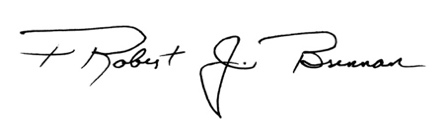 + Robert J. Brennan